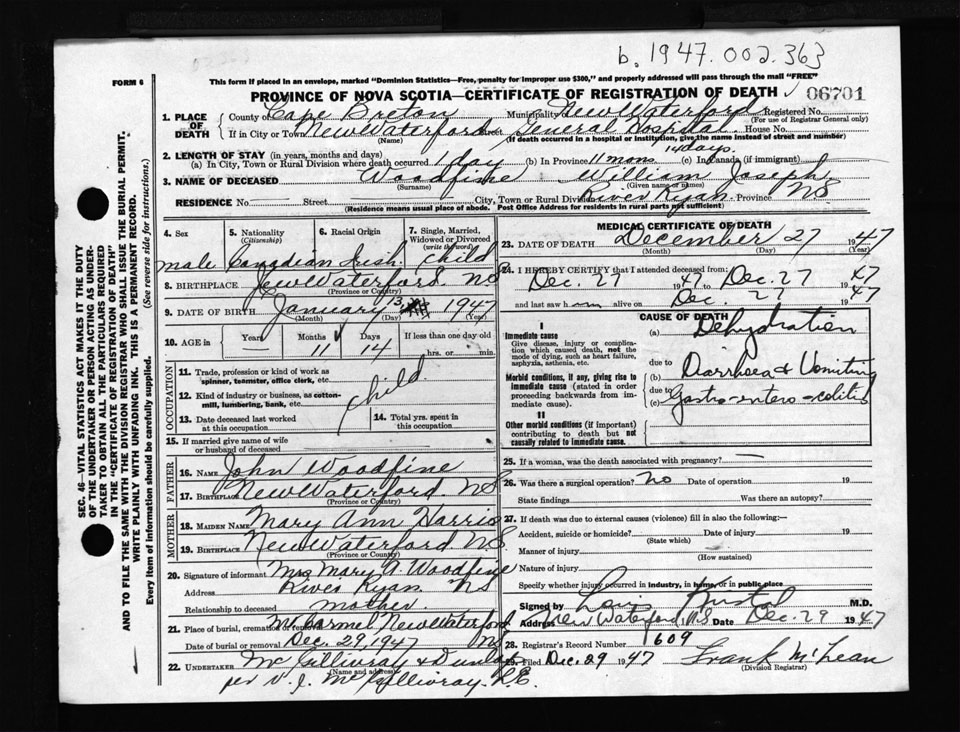 b. 1947.002.363
FORM 6
This form if placed in an envelope, marked "Dominion Statistics—Free, penalty for improper use $300," and properly addressed will pass through the mail "FREE"
PROVINCE OF NOVA SCOTIA—CERTIFICATE OF REGISTRATION OF DEATH
06701
1. PLACE OF DEATH
County of Cape Breton Municipality New Waterford Registered No.
(For use of Registrar General only)
If in City or Town New Waterford Street General Hospital House No.
(Name) (If death occurred in a hospital or institution, give the name instead of street and number)
2. LENGTH OF STAY (in years, months and days)
14 days.
(a) In City, Town or Rural Division where death occurred 1 day (b) In Province 11 mons (c) In Canada (if immigrant)
3. NAME OF DECEASED Woodfine William Joseph.
(Surname) (Given name or names)
RESIDENCE No. Street City, Town or Rural Division River Ryan. Province NS
(Residence means usual place of abode. Post Office Address for residents in rural parts not sufficient)
4. Sex
5. Nationality
(Citizenship)
6. Racial Origin
7. Single, Married, Widowed or Divorced
(write the word)
male Canadian Irish. child
8. BIRTHPLACE New Waterford. NS
(Province or Country)
9. DATE OF BIRTH January 13, 1947
(Month) (Day) (Year)
10. AGE in
Years Months Days If less than one day old
11 14 hrs. or min.
OCCUPATION
11. Trade, profession or kind of work as spinner, teamster, office clerk, etc.
12. Kind of industry or business, as cotton-mill, lumbering, bank, etc.
child.
13. Date deceased last worked at this occupation
14. Total yrs. spent in this occupation
15. If married give name of wife or husband of deceased
FATHER
16. NAME John Woodfine
17. BIRTHPLACE New Waterford. NS
MOTHER
18. MAIDEN NAME Mary Ann Harris
19. BIRTHPLACE New Waterford. N.S.
(Province or Country)
20. Signature of informant Mrs Mary A. Woodfine
Address River Ryan. NS
Relationship to deceased mother.
21. Place of burial, cremation or removal Mt Carmel New Waterford
Date of burial or removal Dec. 29, 1947 NS
22. UNDERTAKER McGillivray & Dunlap
(Name and address)
per V. J. McGillivray. L.E.
MEDICAL CERTIFICATE OF DEATH
23. DATE OF DEATH December 27 1947
(Month) (Day) (Year)
24. I HEREBY CERTIFY that I attended deceased from:
Dec. 27 1947 to Dec. 27 1947
and last saw h im alive on Dec. 27 1947
CAUSE OF DEATH
I
Immediate cause
Give disease, injury or complication which caused death, not the mode of dying, such as heart failure, asphyxia, asthenia, etc.
(a) Dehydration
due to
Morbid conditions, if any, giving rise to immediate cause (stated in order proceeding backwards from immediate cause).
(b) Diarrhoea & Vomiting
due to
(c) Gastro-entero-colitis
II
Other morbid conditions (if important) contributing to death but not causally related to immediate cause.
25. If a woman, was the death associated with pregnancy? —
26. Was there a surgical operation? no Date of operation 19
State findings Was there an autopsy?
27. If death was due to external causes (violence) fill in also the following:—
Accident, suicide or homicide? Date of injury 19
(State which)
Manner of injury
(How sustained)
Nature of injury
Specify whether injury occurred in industry, in home, or in public place
Signed by M.D.
Address New Waterford N.S Date Dec. 29 1947
28. Registrar's Record Number 609
29. Filed Dec. 29 1947 Frank McLean
(Division Registrar)
SEC. 46—VITAL STATISTICS ACT MAKES IT THE DUTY
OF THE UNDERTAKER OR PERSON ACTING AS UNDER-
TAKER TO OBTAIN ALL THE PARTICULARS REQUIRED
IN THE "CERTIFICATE OF REGISTRATION OF DEATH"
AND TO FILE THE SAME WITH THE DIVISION REGISTRAR WHO SHALL ISSUE THE BURIAL PERMIT.
WRITE PLAINLY WITH UNFADING INK. THIS IS A PERMANENT RECORD.
Every item of information should be carefully supplied. (See reverse side for instructions.)